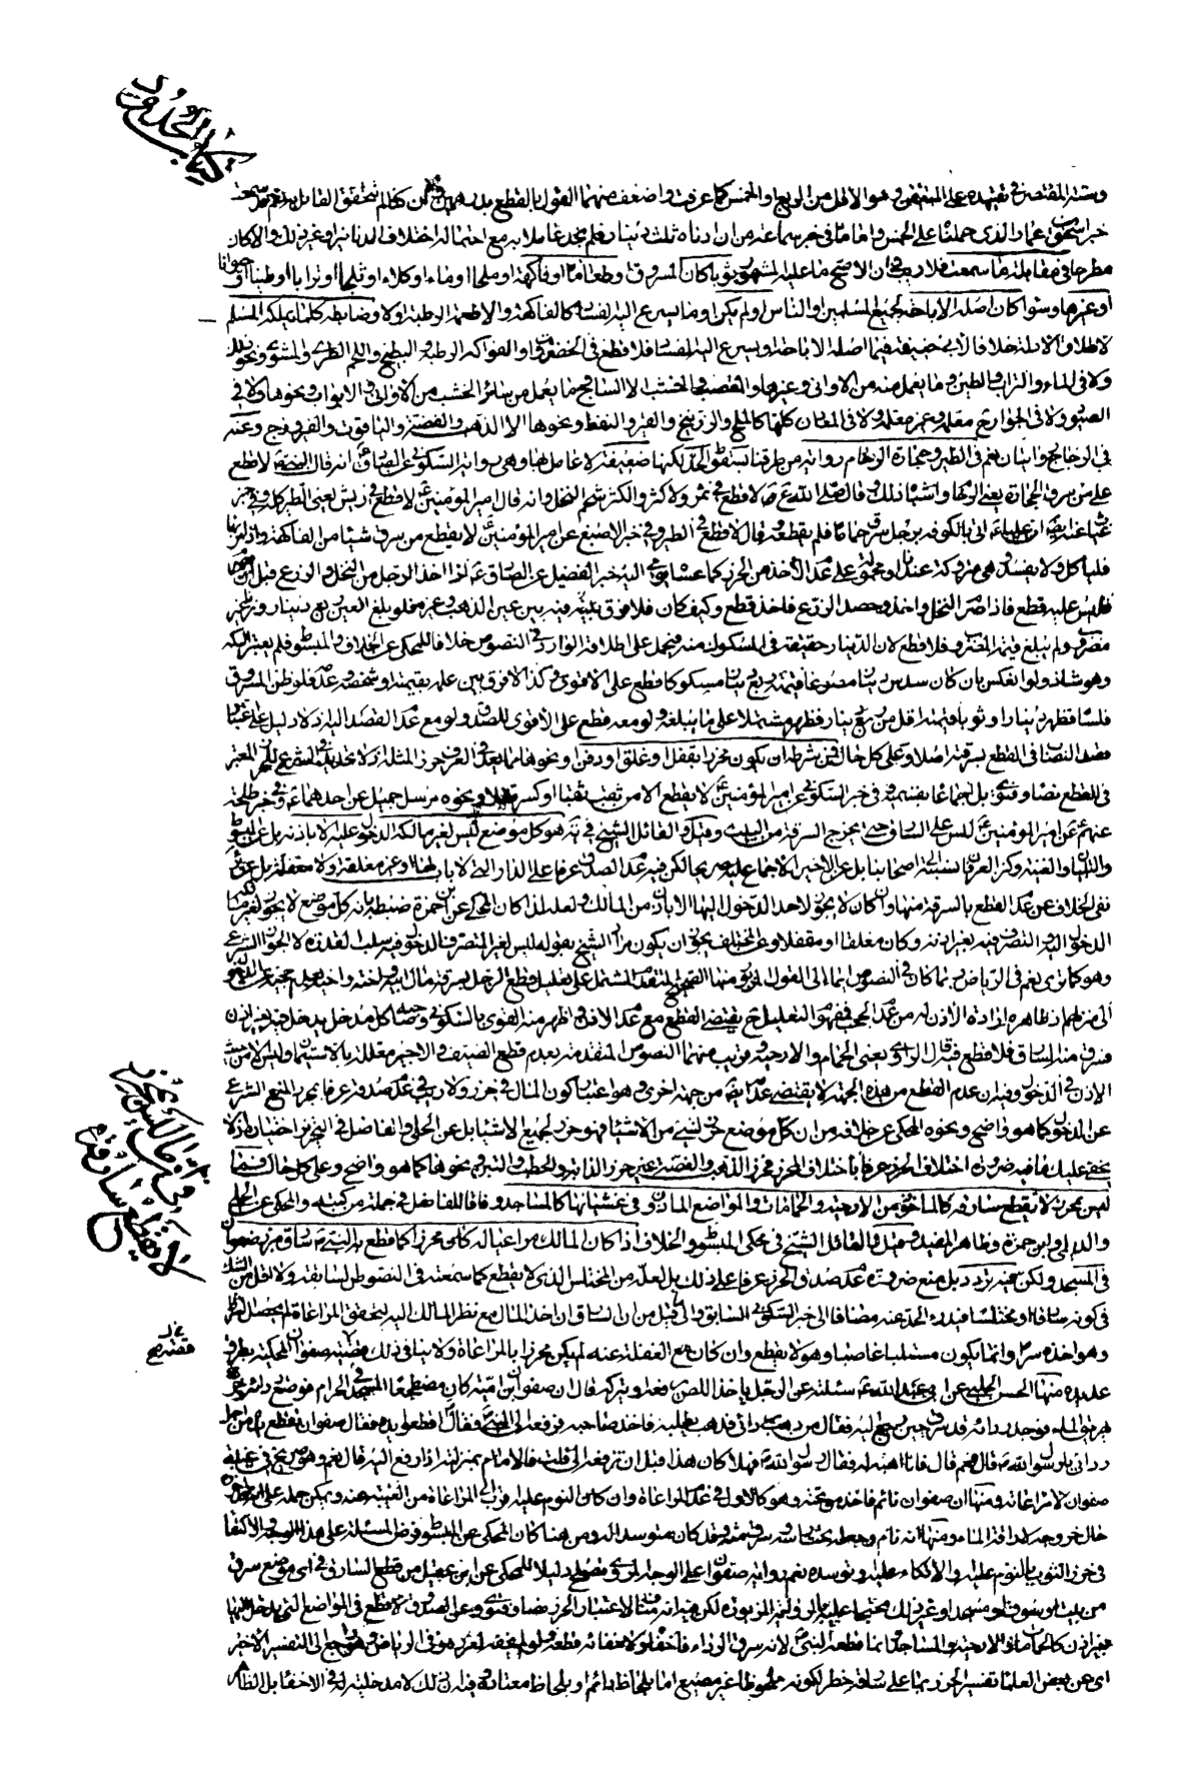 كتاب الحدود
وسنة المقتصر في تقييده على المتيقن وهو الاقل من الربع والخمس كما عرفت واضعف منهما القول بالقطع بدرهمين كالم نتحقق القائل به
خبر اسحق بن عمار الذي حملنا على الخمس واما ما في خبر سماعة من ان ادناه ثلث دينار فلم نجد عاملا به مع احتماله اختلاف الدنانير او غير ذلك والا كان
مطرحا في مقابلة ما سمعت فلا ريب في ان الاصح ما عليه المشهور ثوبا كان المسروق او طعاما او فاكهة او ملحا او ماء او كلاء او ثلجا او ترابا او طينا او حيوانا
او غيرها وسواء كان اصله الاباحة لجميع المسلمين او الناس او لم يكن او ما يسرع اليه الفساد كالفاكهة والاطعمة الرطبة او لا وضابطه كلما يملكه المسلم
لاطلاق الادلة خلافا لأبي حنيفة فيما اصله الاباحة او يسرع اليه الفساد فلا قطع في الخضروات والفواكه الرطبة والبطيخ واللحم الطري والمشوي ونحو ذلك
ولا في الماء والتراب والطين وما يعمل منه من الاواني وغيرها والقصب والخشب الا الساج وما يعمل من سائر الخشب من الاواني والابواب ونحوها ولا في
الصيود ولا في الجوارح معلمة وغير معلمة ولا في المعادن كلها كالملح والزرنيخ والقير والنفط ونحوها الا الذهب والفضة والياقوت والفيروزج وعنه
في الزجاج روايتان نعم في الطير وحجارة الرخام رواية من طرقنا بسقوط الحد لكنها ضعيفة لا عامل بها وهي رواية السكوني عن الصادق ع انه قال النبي ص لا قطع
على من سرق الحجارة يعني الرخام واشباه ذلك وقال صلى الله عليه لا قطع في ثمر ولا كثر والكثر شحم النخل وانه قال امير المؤمنين ع لا قطع في ريش يعني الطير كله وخبر
غياث عنه ايضا ان عليا ع اتي بالكوفة برجل سرق حماما فلم يقطعه وقال لا قطع في الطير وفي خبر الاصبغ عن امير المؤمنين ع لا يقطع من سرق شيئا من الفاكهة
فليأكل ولا يفسد وهي متروكة عندنا او محمولة على عدم الاخذ من الحرز كما عساه يومي اليه خبر الفضيل عن الصادق ع اذا اخذ الرجل من النخل والزرع قبل ان يصرم
فليس عليه قطع فاذا صرم النخل واخذ وحصد الزرع فاخذ قطع وكيف كان فلا فرق فيه بين عين الذهب وغيره فلو بلغ العين ربع دينار وزنا غير
مضروب ولم يبلغ قيمة المضروب فلا قطع لان الدينار حقيقة في المسكوك منه فيحمل على اطلاقه الوارد في النصوص خلافا للمحكي عن الخلاف والمبسوط فلم يعتبر السكة
وهو شاذ ولو انعكس بان كان سدس دينار مصوغا قيمته ربع دينار مسكوكا قطع على الاقوى وكذا لا فرق بين علمه بقيمته او شخصه وعدمه فلو ظن المسروق
فلسا فظهر دينارا او ثوبا قيمته اقل من ربع دينار فظهر مشتملا على ما يبلغه ولو معه قطع على الاقوى للصدق ولو مع عدم القصد اليه اذ لا دليل على اعتبار
قصد النصاب في القطع بسرقته اصلا وعلى كل حال فمن شرطه ان يكون محرزا بقفل او غلق او دفن او نحوها مما يعد في العرف حرزا لمثله اذ لا تحديد في الشرع للحرز المعتبر
في القطع نصا وفتوى بل اجماعا بقسميه وفي خبر السكوني عن امير المؤمنين ع لا يقطع الا من نقب نقبا او كسر قفلا ونحوه مرسل جميل عن احدهما ع وفي خبر طلحة
عنهم عن امير المؤمنين ع ليس على السارق حتى يخرج السرقة من البيت وقيل والقائل الشيخ في ية هو كل موضع ليس لغير مالكه الدخول عليه الا باذنه بل عن المبسوط
والتبيان والغنية وكنز العرفان نسبته الى اصحابنا بل عن الاخير الاجماع عليه صريحا لكن فيه عدم الصدق عرفا على الدار التي لا باب لها او غير مغلقة ولا مقفلة بل عن
نفي الخلاف عن عدم القطع بالسرقة منها وان كان لا يجوز لاحد الدخول اليها الا باذن من المالك ولعله لذا كان المحكي عن ابن حمزة ضبطه بانه كل موضع لا يجوز لغير مالكه
الدخول اليه او التصرف فيه بغير اذنه وكان مغلقا او مقفلا
وهو كما ترى نعم في الرياض ربما كان في النصوص ايماء الى القول المزبور ومنها الصحيح المتقدم المشتمل على تعليل قطع الرجل بسرقة مال ابيه واخته واخيه بعدم حجبه عن الدخول
الى منزلهم اذ ظاهره ارادة الاذن له من عدم الحجب فمفهوم التعليل ح يقتضي القطع مع عدم الاذن واظهر منه القوي بالسكوني وصاحبه كل مدخل يدخل فيه بغير اذن
فسرق منه السارق فلا قطع فيه قال الراوي يعني الحمام والارحية وقريب منهما النصوص المتقدمة بعدم قطع الضيف والاجير معللة بالاستيمان وليس الا من حيث
الاذن في الدخول وفيه ان عدم القطع من هذه الجهة لا يقتضي عدمه من جهة اخرى وهو اعتبار كون المال في حرز ولا ريب في عدم صدقه عرفا بمجرد المنع الشرعي
عن الدخول كما هو واضح ونحوه المحكي عن خلافه من ان كل موضع حرز لشيء من الاشياء فهو حرز لجميع الاشياء بل عن الحلي والفاضل في التحرير اختياره اذ لا
يخفى عليك ما فيه ضرورة اختلاف الحرز عرفا باختلاف المحرز فحرز الذهب والفضة غير حرز الدابة والحطب والتبن ونحوها كما هو واضح وعلى كل حال فما
ليس بمحرز لا يقطع سارقه كالمأخوذ من الارحية والحمامات والمواضع المأذون في غشيانها كالمساجد وفاقا للفاضل في جملة من كتبه والمحكي عن الحلي
والديلمي وابن حمزة وظاهر المفيد وقيل والقائل الشيخ في محكي المبسوط والخلاف اذا كان المالك مراعيا له كان محرزا كما قطع النبي ص سارق مئزر صفوان
في المسجد ولكن فيه تردد بل منع ضرورة عدم صدق الحرز عرفا على ذلك بل لعله من المختلس الذي لا يقطع كما سمعته في النصوص السابقة ولا اقل من الشك
في كونه سارقا او مختلسا فيدرء الحد عنه مضافا الى خبر السكوني السابق والى ما قيل من ان السارق ان اخذ المال مع نظر المالك اليه لتحقق المراعاة لم يحصل الشرط
وهو اخذه سرا وانما يكون مستلبا غاصبا وهو لا يقطع وان كان مع الغفلة عنه لم يكن محرزا بالمراعاة ولا ينافي ذلك قضية صفوان المحكية بطرق
عديدة منها الحسن الحلبي عن ابي عبدالله ع سئلته عن الرجل ياخذ اللص يرفعه او يتركه قال ان صفوان ابن امية كان مضطجعا في المسجد الحرام فوضع ردائه وخرج
يهريق الماء فوجد ردائه قد سرق حين رجع اليه فقال من ذهب بردائي فذهب يطلبه فاخذ صاحبه فرفعه الى النبي ص فقال اقطعوا يده فقال صفوان تقطع يده من اجل
ردائي يا رسول الله ص قال نعم قال فانا اهبه له فقال رسول الله ص فهلا كان هذا قبل ان ترفعه الي قلت فالامام بمنزلته اذا رفع اليه قال نعم وهو صريح في غيبة
صفوان لا مراعاته ومنها ان صفوان نائم فاخذ من تحته وهو كالاول في عدم المراعاة وان كان النوم عليه اقرب الى المراعاة من الغيبة عنه ويمكن حمله على
حال خروجه لهراقة الماء ومنها انه نام
في حرز الثوب بالنوم عليه والاتكاء عليه وتوسده نعم رواية صفوان على الوجه المروي تصلح دليلا للمحكي عن ابن عقيل من قطع السارق في اي موضع سرق
من بيت او سوق او مسجد او غير ذلك محتجا عليه بالرواية المزبورة لكن فيه انه مناف لاعتبار الحرز نصا وفتوى وعن الصدوق لا قطع في المواضع التي يدخل اليها
بغير اذن كالحمامات والارحية والمساجد وانما قطعه النبي ص لانه سرق الرداء فاخفاه ولاخفائه قطعه ولو لم يخفه لعزره وفي الرياض
اي عن بعض العلماء تفسير الحرز بما على سارقه خطر لكونه ملحوظا غير مضيع اما بلحاظ دائم او بلحاظ معتاد وفيه ان ذلك لا مدخلية له في الاخفاء بل الظاهر
في ان ما ليس بمحرز
لا يقطع سارقه